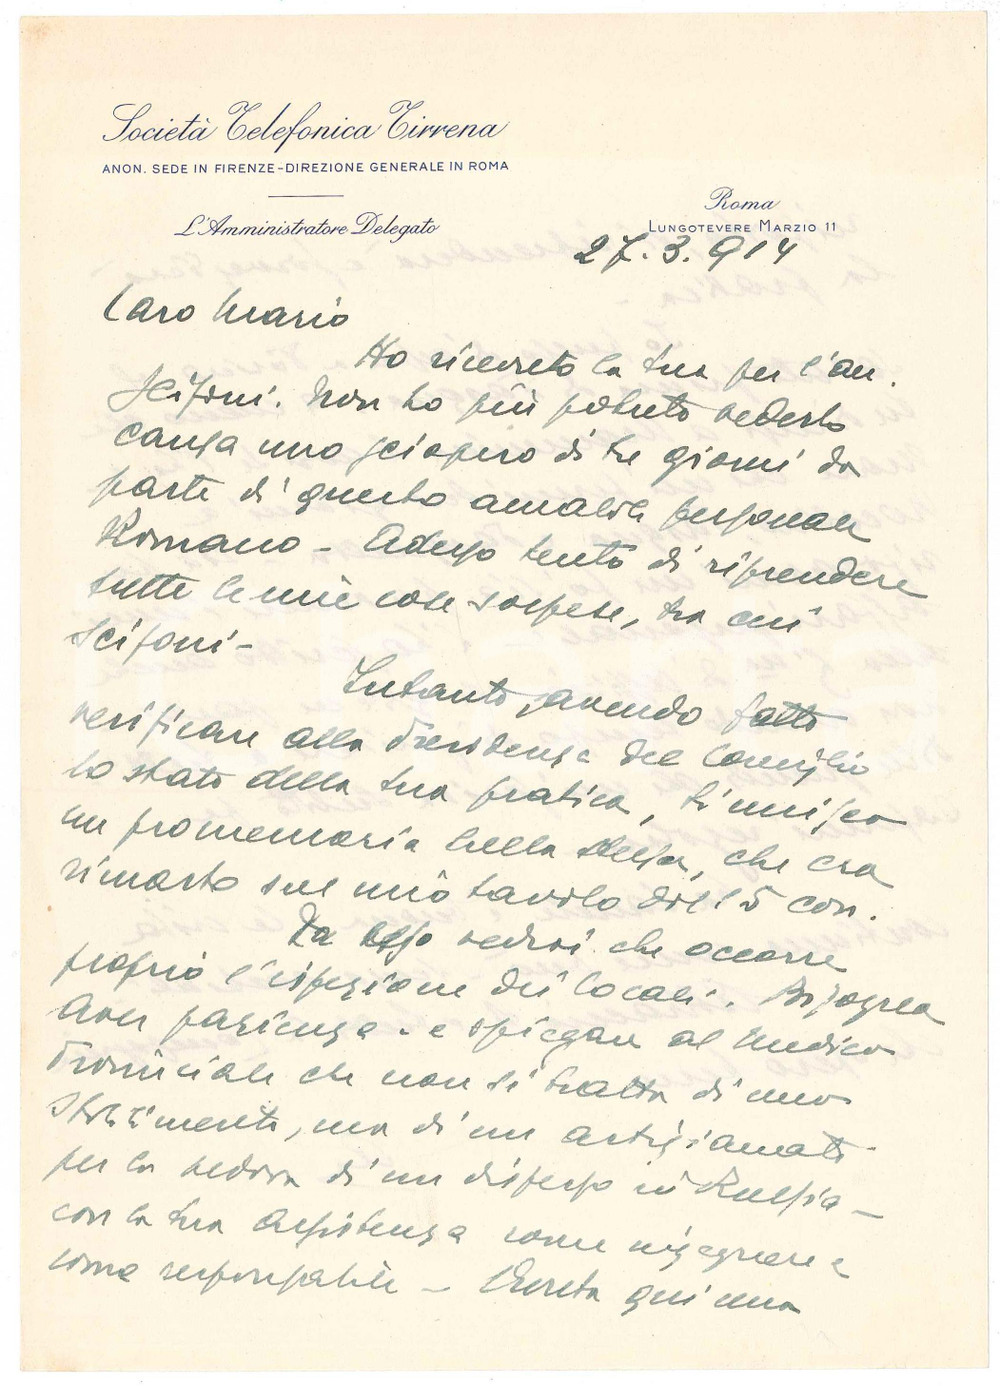 Società Telefonica Tirrena
ANON. SEDE IN FIRENZE - DIREZIONE GENERALE IN ROMA
L'Amministratore Delegato
Roma
LUNGOTEVERE MARZIO 11
27.3.914
Caro Mario
Ho ricevuto la tua per l'au.
Scifoni. Non ho più potuto vederlo
causa uno sciopero di tre giorni da
parte di questo amabile personale
Romano - Adesso tento di riprendere
tutte le mie cose sospese, tra cui
Scifoni -
Intanto, avendo fatto
verificare alla Presidenza del Consiglio
lo stato della tua pratica, ti unisco
un promemoria sulla stessa, che era
rimasto sul mio tavolo dal 15 corr.
Da esso vedrai che occorre
proprio l'ispezione dei locali. Bisogna
aver pazienza - e spiegare al Medico
Provinciale che non si tratta di uno
stabilimento, ma di un artigianato
per la vedova di un disperso in Russia -
con la tua assistenza come ingegnere e
come responsabile - qui una